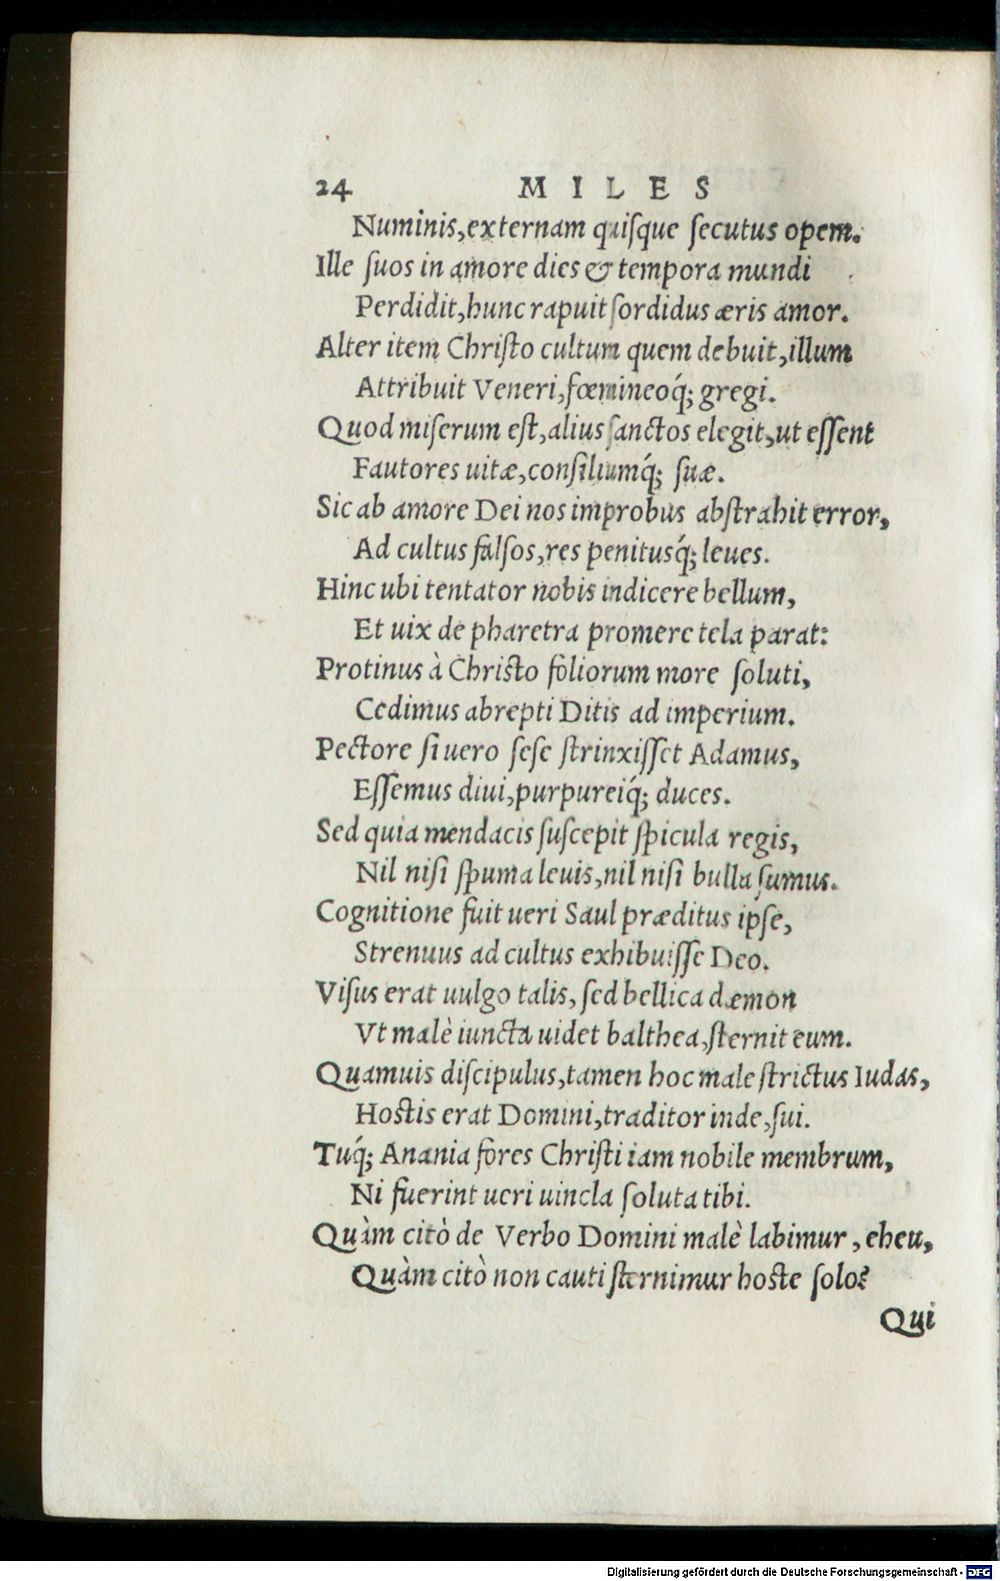 24 MILES
Numinis, externam quiſque ſecutus opem.
Ille ſuos in amore dies & tempora mundi
Perdidit, hunc rapuit ſordidus æris amor.
Alter item Chriſto cultum quem debuit, illum
Attribuit Veneri, fœmineoq́; gregi.
Quod miſerum eſt, alius ſanctos elegit, ut eſſent
Fautores uitæ, conſiliumq́; ſuæ.
Sic ab amore Dei nos improbus abſtrahit error,
Ad cultus falſos, res penitusq́; leues.
Hinc ubi tentator nobis indicere bellum,
Et uix de pharetra promere tela parat:
Protinus à Chriſto foliorum more ſoluti,
Cedimus abrepti Ditis ad imperium.
Pectore ſi uero ſeſe ſtrinxiſſet Adamus,
Eſſemus diui, purpureiq́; duces.
Sed quia mendacis ſuſcepit ſpicula regis,
Nil niſi ſpuma leuis, nil niſi bulla ſumus.
Cognitione fuit ueri Saul præditus ipſe,
Strenuus ad cultus exhibuiſſe Deo.
Viſus erat uulgo talis, ſed bellica dæmon
Vt malè iuncta uidet balthea, ſternit eum.
Quamuis diſcipulus, tamen hoc male ſtrictus Iudas,
Hoſtis erat Domini, traditor inde, ſui.
Tuq́; Anania fores Chriſti iam nobile membrum,
Ni fuerint ueri uincla ſoluta tibi.
Quàm citò de Verbo Domini malè labimur, eheu,
Quàm citò non cauti ſternimur hoſte ſolo?
Qui
Digitalisierung gefördert durch die Deutsche Forschungsgemeinschaft - DFG